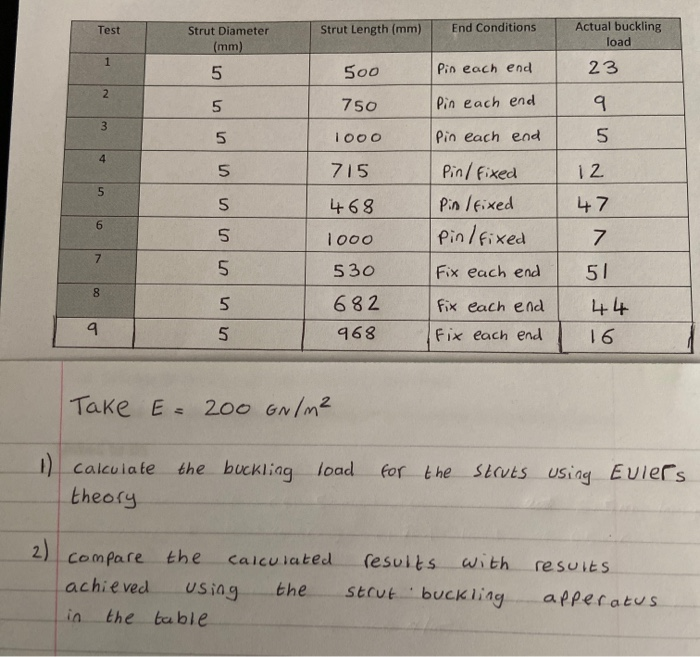 Test Strut Diameter (mm) Strut Length (mm) End Conditions Actual buckling load
1 5 500 Pin each end 23
2 5 750 Pin each end 9
3 5 1000 Pin each end 5
4 5 715 Pin/fixed 12
5 5 468 Pin/fixed 47
6 5 1000 Pin/fixed 7
7 5 530 Fix each end 51
8 5 682 Fix each end 44
9 5 968 Fix each end 16
Take E = 200 GN/m²
1) calculate the buckling load for the struts using Eulers
theory
2) compare the calculated results with results
achieved using the strut buckling apperatus
in the table